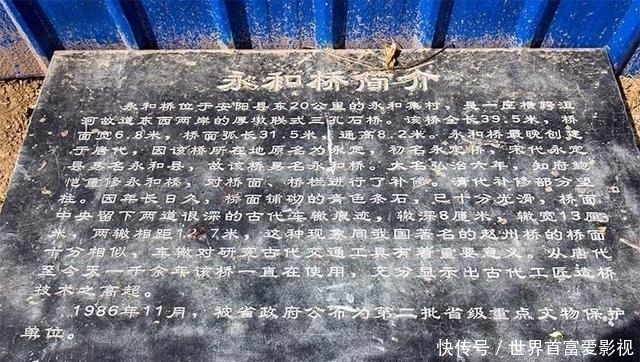 永和桥简介
永和桥位于安阳县东20公里的永和集村，是一座横跨洹
河故道东西两岸的厚墩联式三孔石桥。该桥全长39.5米，桥
面宽6.8米，桥面弧长31.5米，通高8.2米。永和桥最晚创建
于唐代，因该桥所在地原名为永定，初名永定桥，宋代永定
县易名永和县，故该桥易名永和桥。大名弘治六年，知府
恺重修永和桥，对桥面、桥栏进行了补修。清代补修部分望
柱。因年长日久，桥面铺砌的青色条石，已十分光滑，桥面
中央留下两道很深的古代车辙痕迹，辙深8厘米，辙宽13厘
米，两辙相距12.7米，这种现象同我国著名的赵州桥的桥面
十分相似，车辙对研究古代交通工具有着重要意义。从唐代
至今天一千余年该桥一直在使用，充分显示出古代工匠造桥
技术之高超。
1986年11月，被省政府公布为第二批省级重点文物保护
单位。
快传号／世界首富爱影视